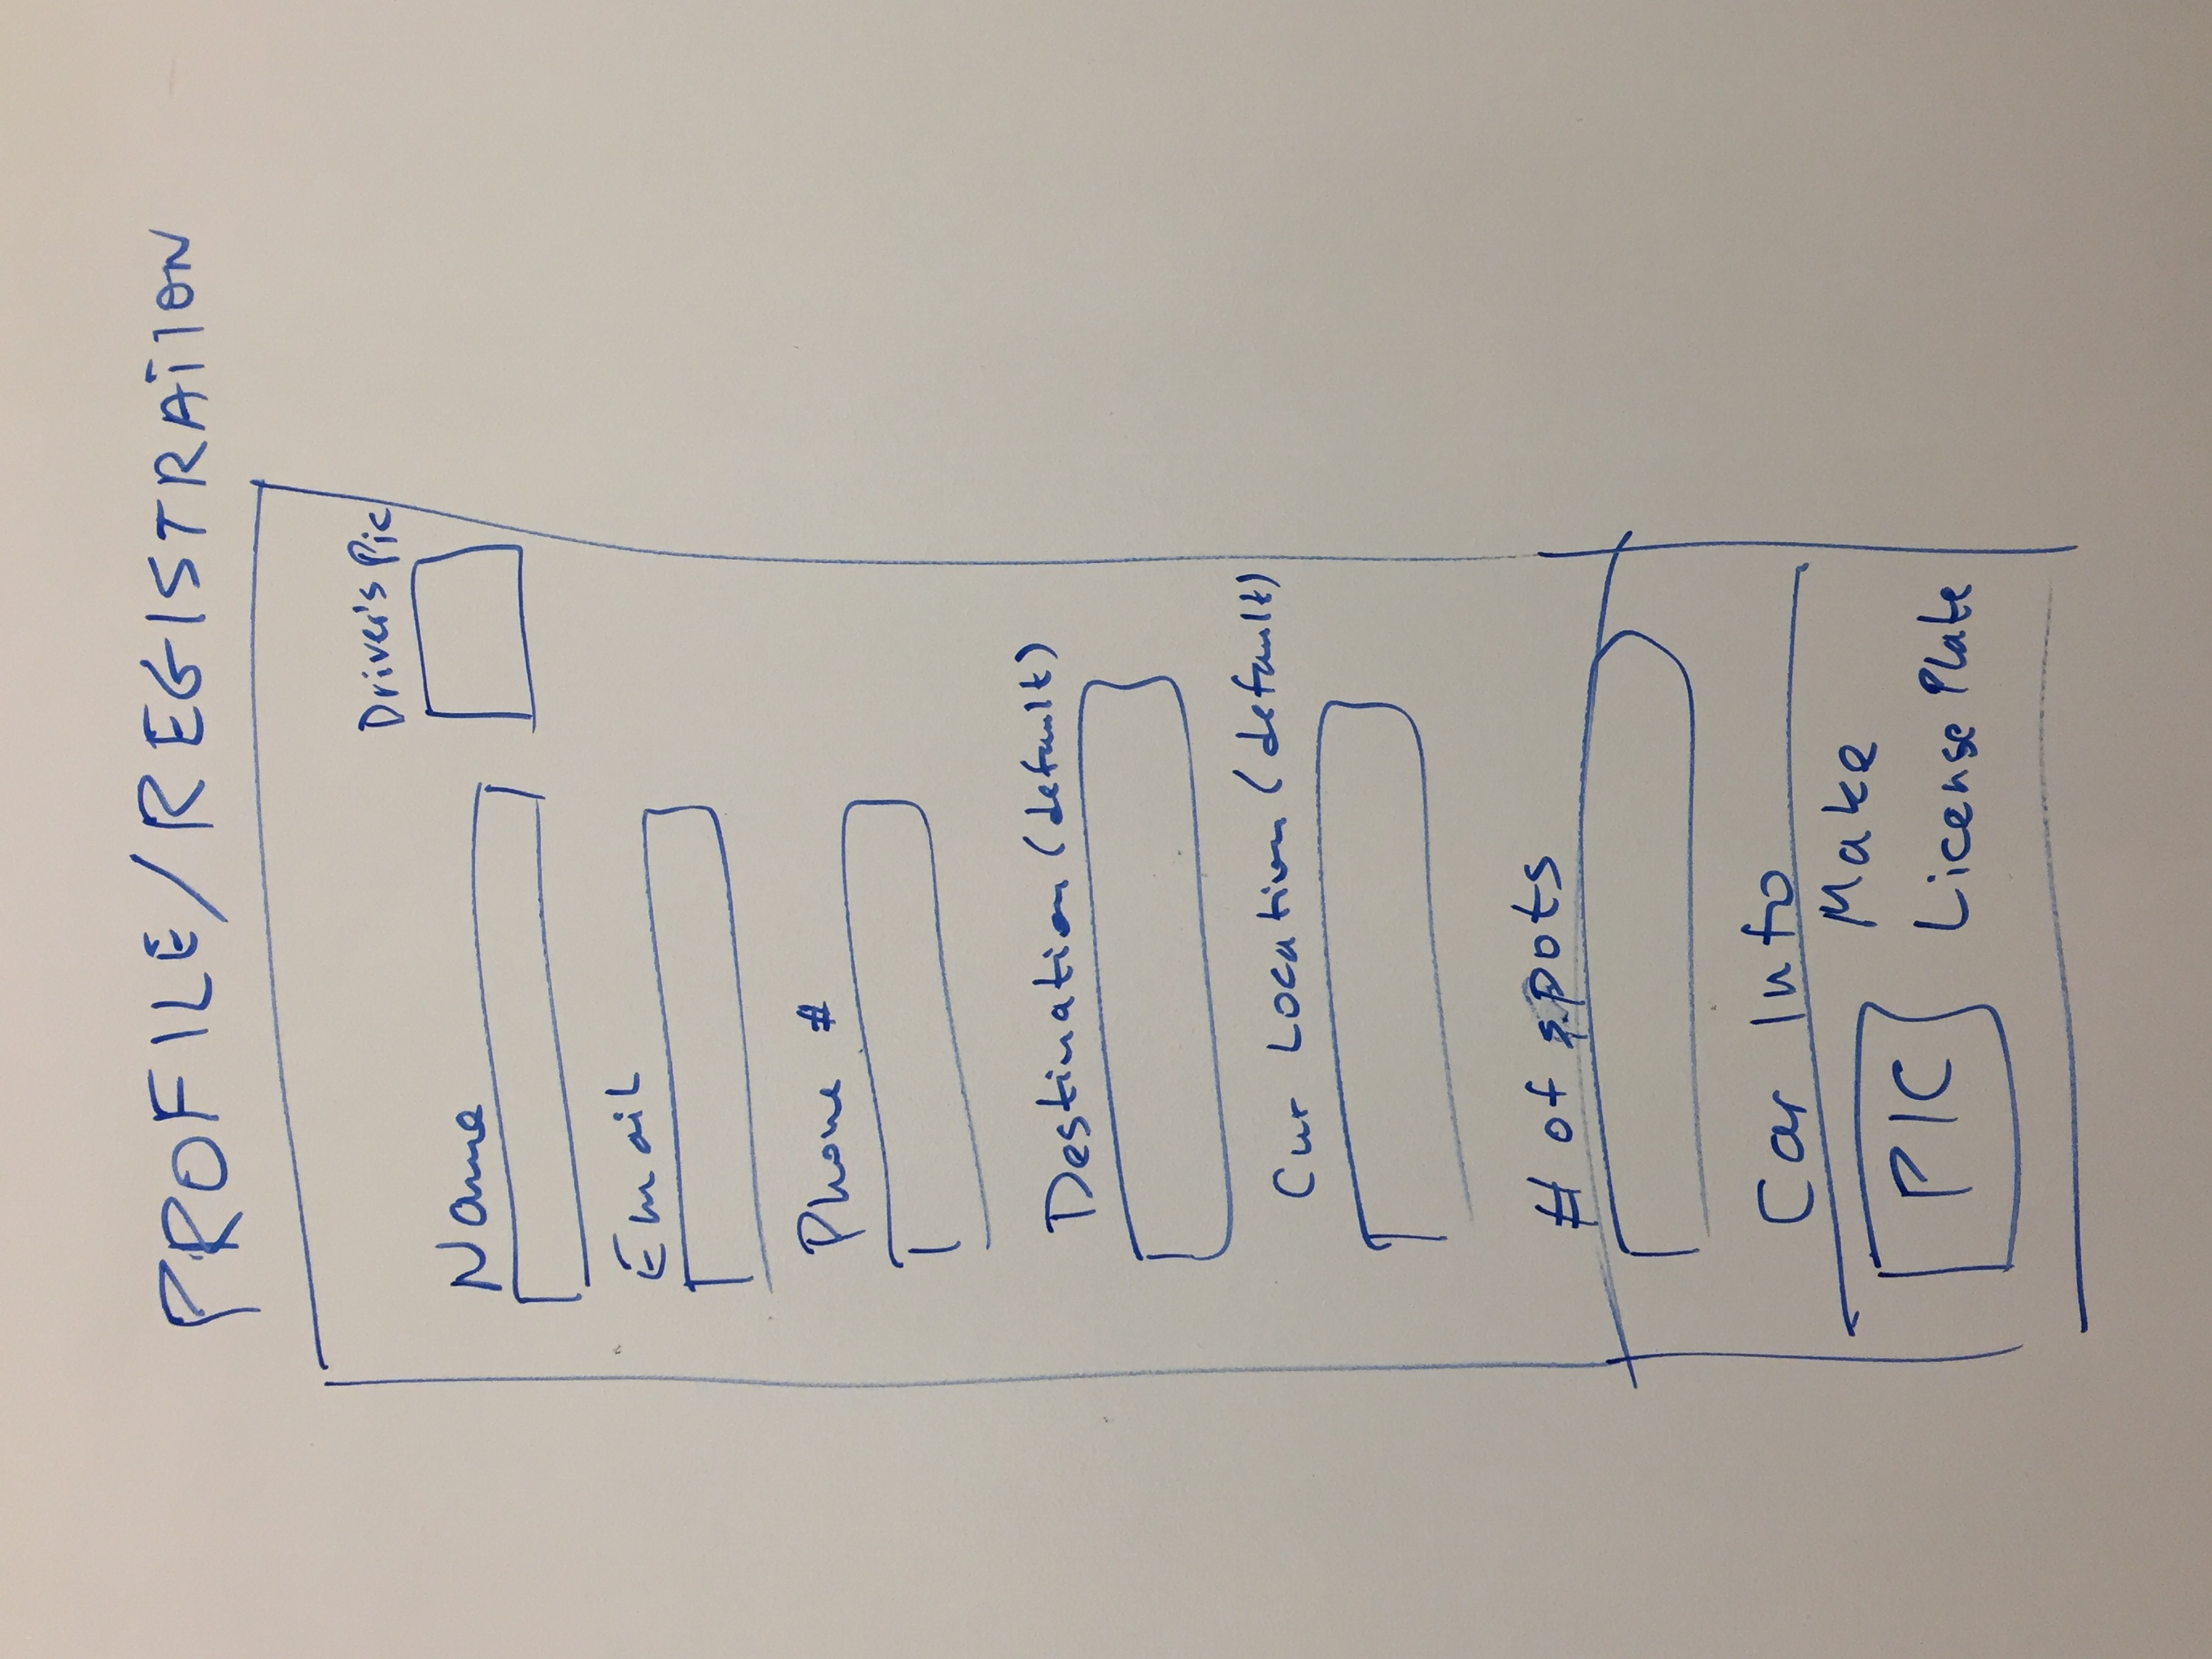 PROFILE/REGISTRATION
Driver's Pic
Name
Email
Phone #
Destination (default)
Cur Location (default)
# of spots
Car Info
PIC
Make
License Plate